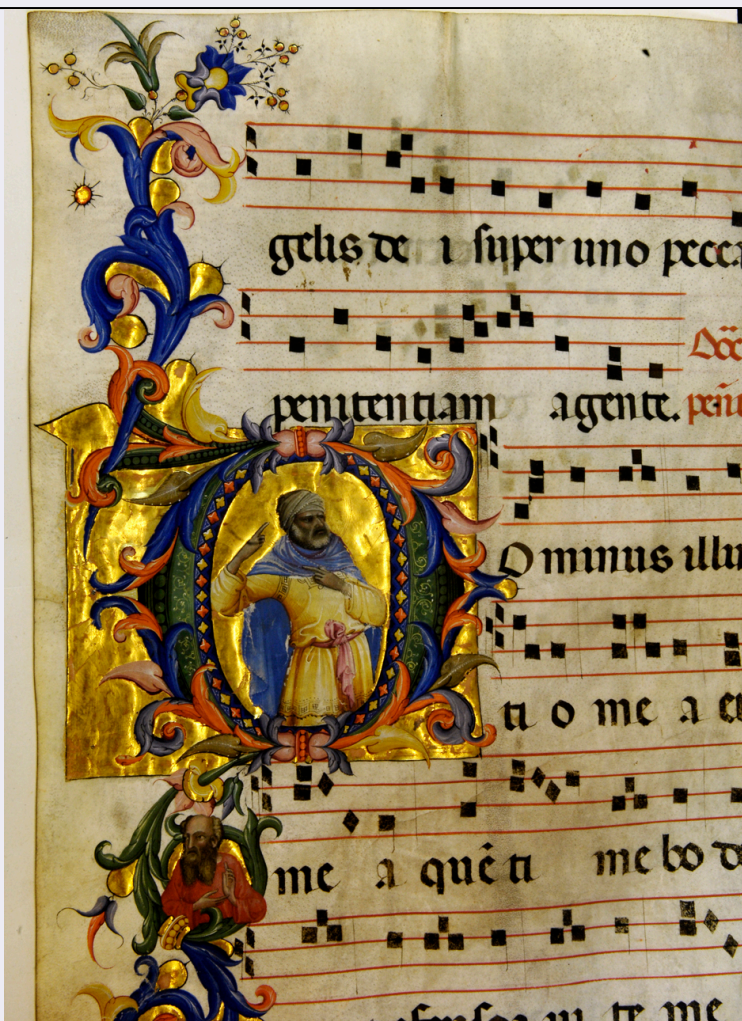 gelis de i super uno pecca
penitentiam agente.
Ominus illu
ti o me a et
me a quē ti me bo de